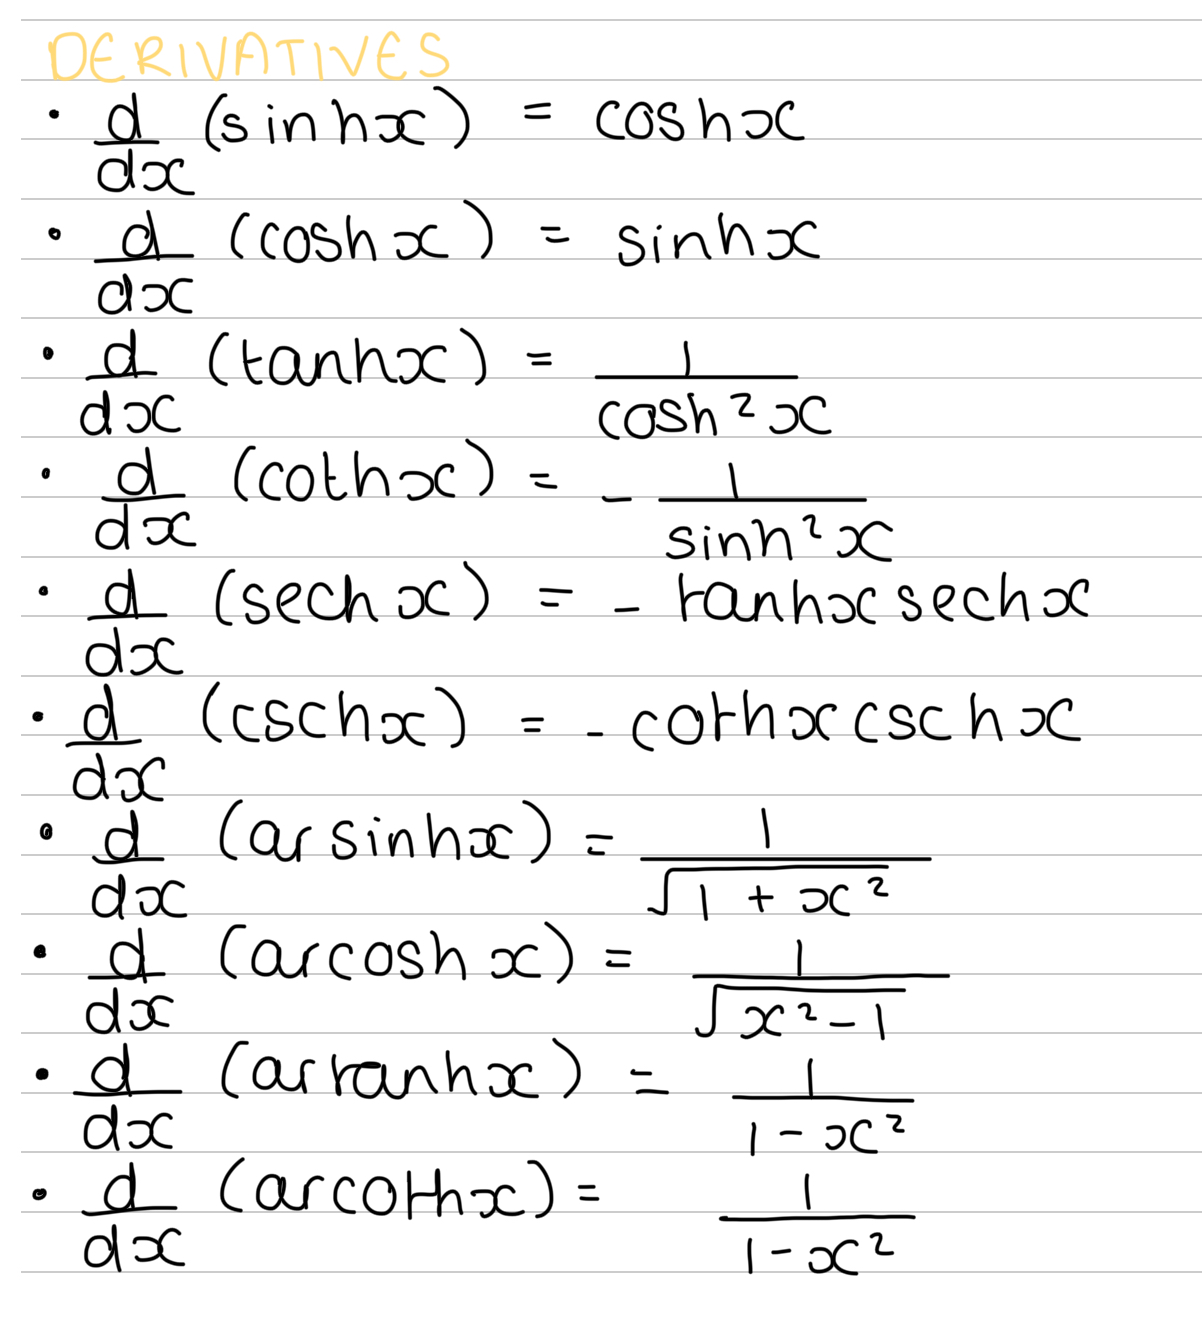 DERIVATIVES
• d/dx (sinhx) = coshx
• d/dx (coshx) = sinhx
• d/dx (tanhx) = 1/cosh²x
• d/dx (cothx) = - 1/sinh²x
• d/dx (sechx) = - tanhx sechx
• d/dx (cschx) = - cothx cschx
• d/dx (arsinhx) = 1/√(1 + x²)
• d/dx (arcoshx) = 1/√(x² - 1)
• d/dx (artanhx) = 1/(1 - x²)
• d/dx (arcothx) = 1/(1 - x²)